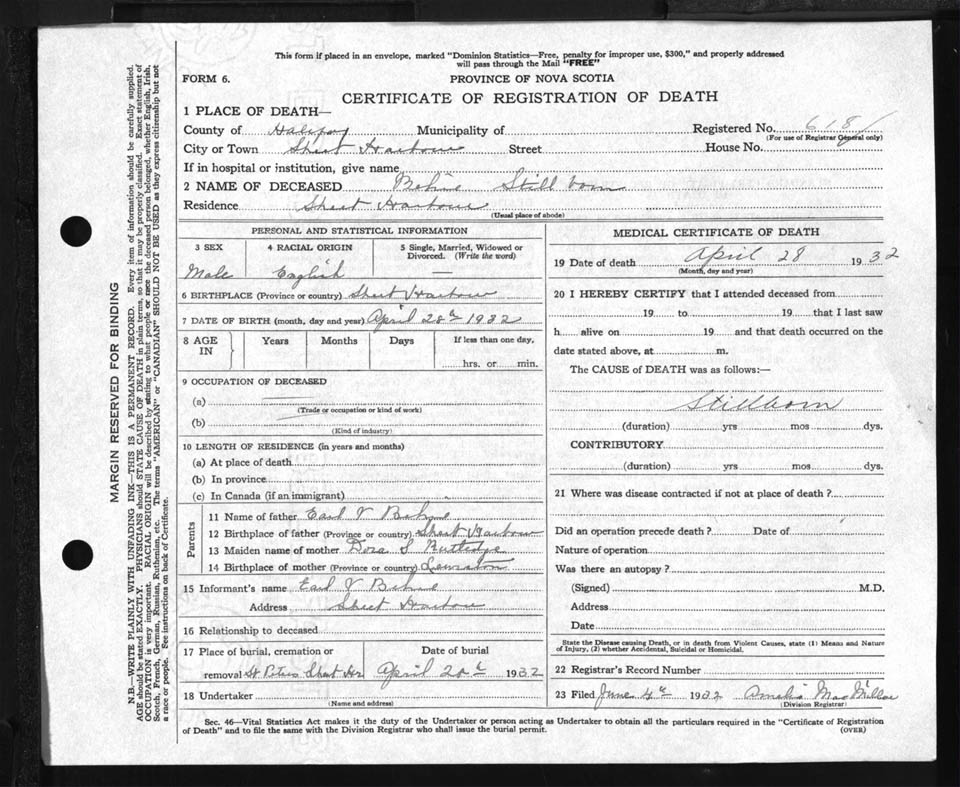 This form if placed in an envelope, marked "Dominion Statistics—Free, penalty for improper use, $300," and properly addressed
will pass through the Mail "FREE"
FORM 6. PROVINCE OF NOVA SCOTIA
CERTIFICATE OF REGISTRATION OF DEATH
1 PLACE OF DEATH—
County of Halifax Municipality of Registered No. 618
(For use of Registrar General only)
City or Town Sheet Harbour Street House No.
If in hospital or institution, give name
2 NAME OF DECEASED Stillborn
Residence Sheet Harbour
(Usual place of abode)
PERSONAL AND STATISTICAL INFORMATION
3 SEX 4 RACIAL ORIGIN 5 Single, Married, Widowed or
Divorced. (Write the word)
Male English —
6 BIRTHPLACE (Province or country) Sheet Harbour
7 DATE OF BIRTH (month, day and year) April 28th 1932
8 AGE IN Years Months Days If less than one day,
hrs. or min.
9 OCCUPATION OF DECEASED
(a)
(Trade or occupation or kind of work)
(b)
(Kind of industry)
10 LENGTH OF RESIDENCE (in years and months)
(a) At place of death
(b) In province
(c) In Canada (if an immigrant)
Parents
11 Name of father Earl V
12 Birthplace of father (Province or country) Sheet Harbour
13 Maiden name of mother Dora S Rutledge
14 Birthplace of mother (Province or country)
15 Informant's name Earl V
Address Sheet Harbour
16 Relationship to deceased
17 Place of burial, cremation or Date of burial
removal St Peters Sheet Hr April 1932
18 Undertaker
(Name and address)
MEDICAL CERTIFICATE OF DEATH
19 Date of death April 28 1932
(Month, day and year)
20 I HEREBY CERTIFY that I attended deceased from
19 to 19 that I last saw
h alive on 19 and that death occurred on the
date stated above, at m.
The CAUSE of DEATH was as follows:—
Stillborn
(duration) yrs mos dys.
CONTRIBUTORY
(duration) yrs mos dys.
21 Where was disease contracted if not at place of death?
Did an operation precede death? Date of
Nature of operation
Was there an autopsy?
(Signed) M.D.
Address
Date
State the Disease causing Death, or in death from Violent Causes, state (1) Means and Nature
of Injury, (2) whether Accidental, Suicidal or Homicidal.
22 Registrar's Record Number
23 Filed June 4th 1932 Amelia MacMillan
(Division Registrar)
Sec. 46—Vital Statistics Act makes it the duty of the Undertaker or person acting as Undertaker to obtain all the particulars required in the "Certificate of Registration
of Death" and to file the same with the Division Registrar who shall issue the burial permit. (OVER)
MARGIN RESERVED FOR BINDING
N.B.—WRITE PLAINLY WITH UNFADING INK—THIS IS A PERMANENT RECORD. Every item of information should be carefully supplied.
AGE should be stated EXACTLY. PHYSICIANS should STATE CAUSE OF DEATH in plain terms, so that it may be properly classified. Exact statement of
OCCUPATION is very important. RACIAL ORIGIN will be described by stating to what people or race the deceased person belonged, whether English, Irish,
Scotch, French, German, Russian, Ruthenian, etc. The terms "AMERICAN" or "CANADIAN" SHOULD NOT BE USED as they express citizenship but not
a race or people. See instructions on back of Certificate.